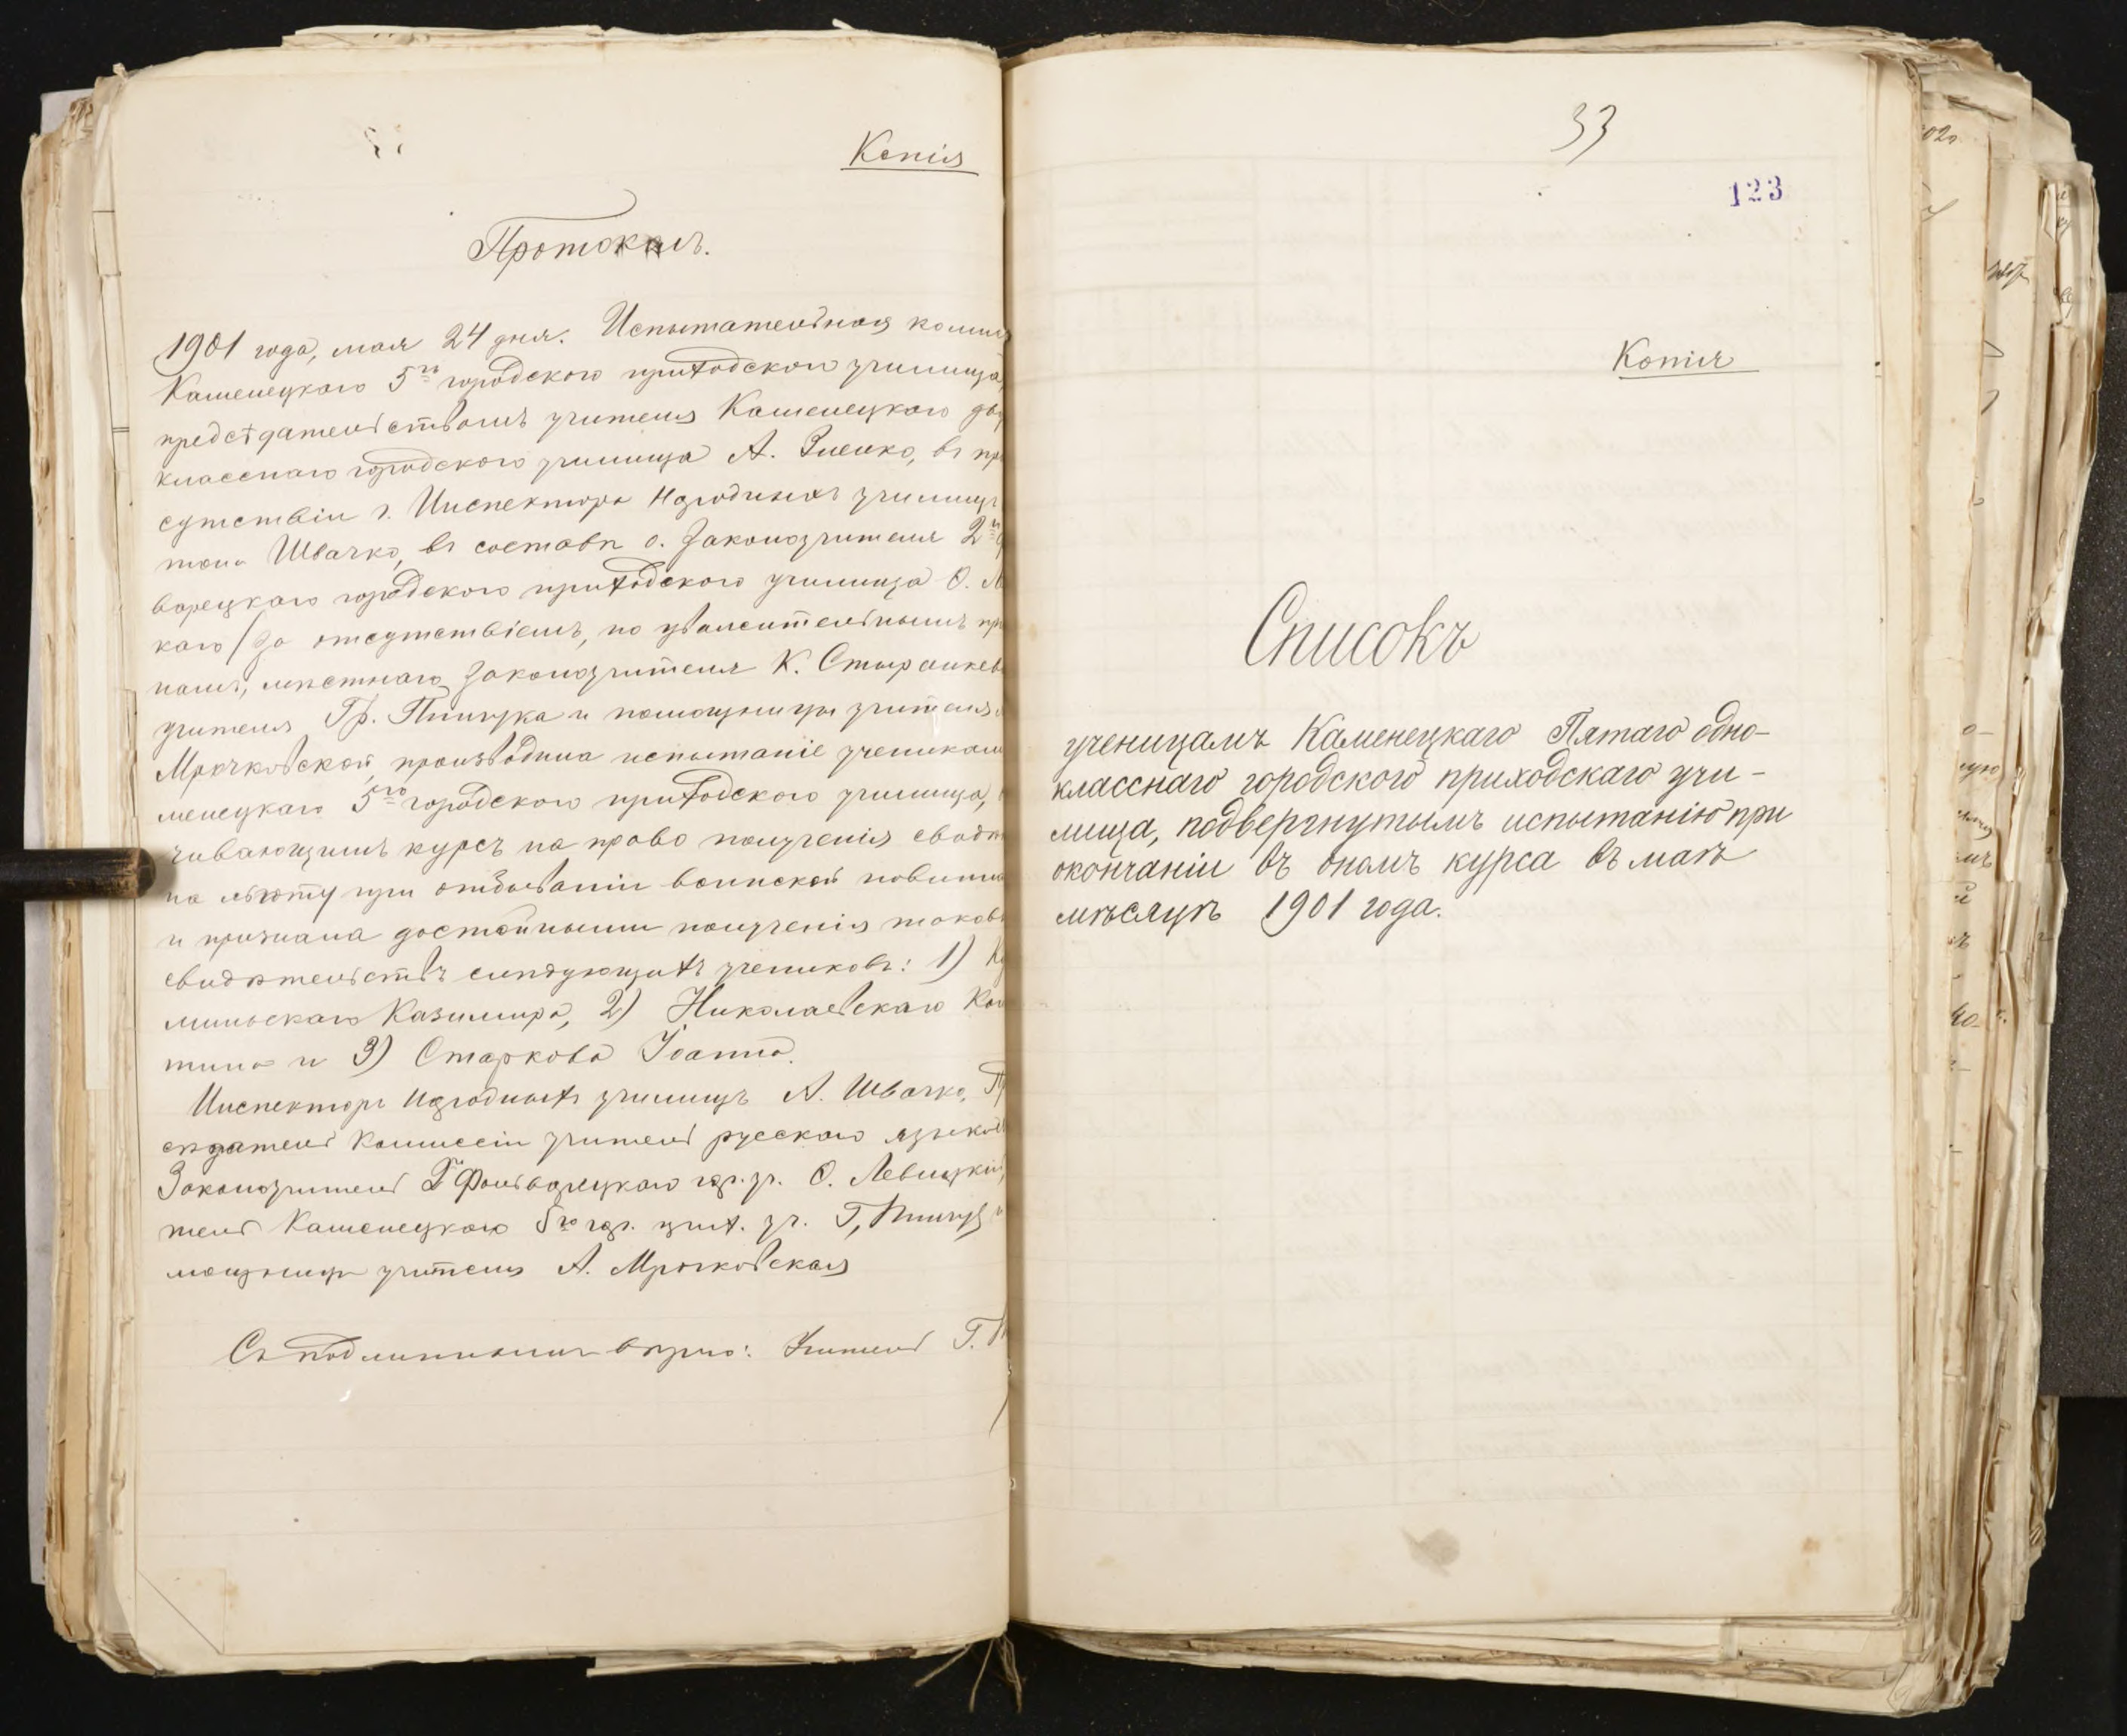 Копія
Протоколъ.
1901 года, мая 24 дня. Испытательная комис
Каменецкаго 5го городского приходского училища,
предсѣдательствомъ учителя Каменецкаго дву
класснаго городского училища А. Зиенко, въ пр
сутствіи г. Инспектора Народныхъ училищъ
Швачко, въ составѣ о. Законоучителя 2го
ворецкаго городского приходского училища О. Л
каго (за отсутствіемъ, по уважительнымъ при
намъ, мѣстнаго Законоучителя К. Стыранкев
учителя Гр. Пташука и помощницы учителя
Мрочковской, производила испытаніе ученикам
менецкаго 5го городского приходского училища,
чивающимъ курсъ на право полученія свидѣ
на льготу при отбываніи воинской повинн
и признала достойными полученія таков
свидѣтельствъ слѣдующихъ учениковъ: 1)
миньскаго Казимира, 2) Николаевскаго Кон
тина и 3) Старкова Іоанна.
Инспекторъ Народныхъ училищъ А. Швачко, П
сѣдатель Комиссіи учитель русскаго языка
Законоучитель 2го Фольварецкаго гор. уч. О. Левицкій,
тель Каменецкаго 5го гор. прих. уч. Г.
мощница учителя А. Мрочковская
Съ подлиннымъ вѣрно: Учитель Г. П
33
123
Копія
Списокъ
ученицамъ Каменецкаго Пятаго одно-
класснаго городского приходскаго учи-
лища, подвергнутымъ испытанію при
окончаніи въ ономъ курса въ маѣ
мѣсяцѣ 1901 года.